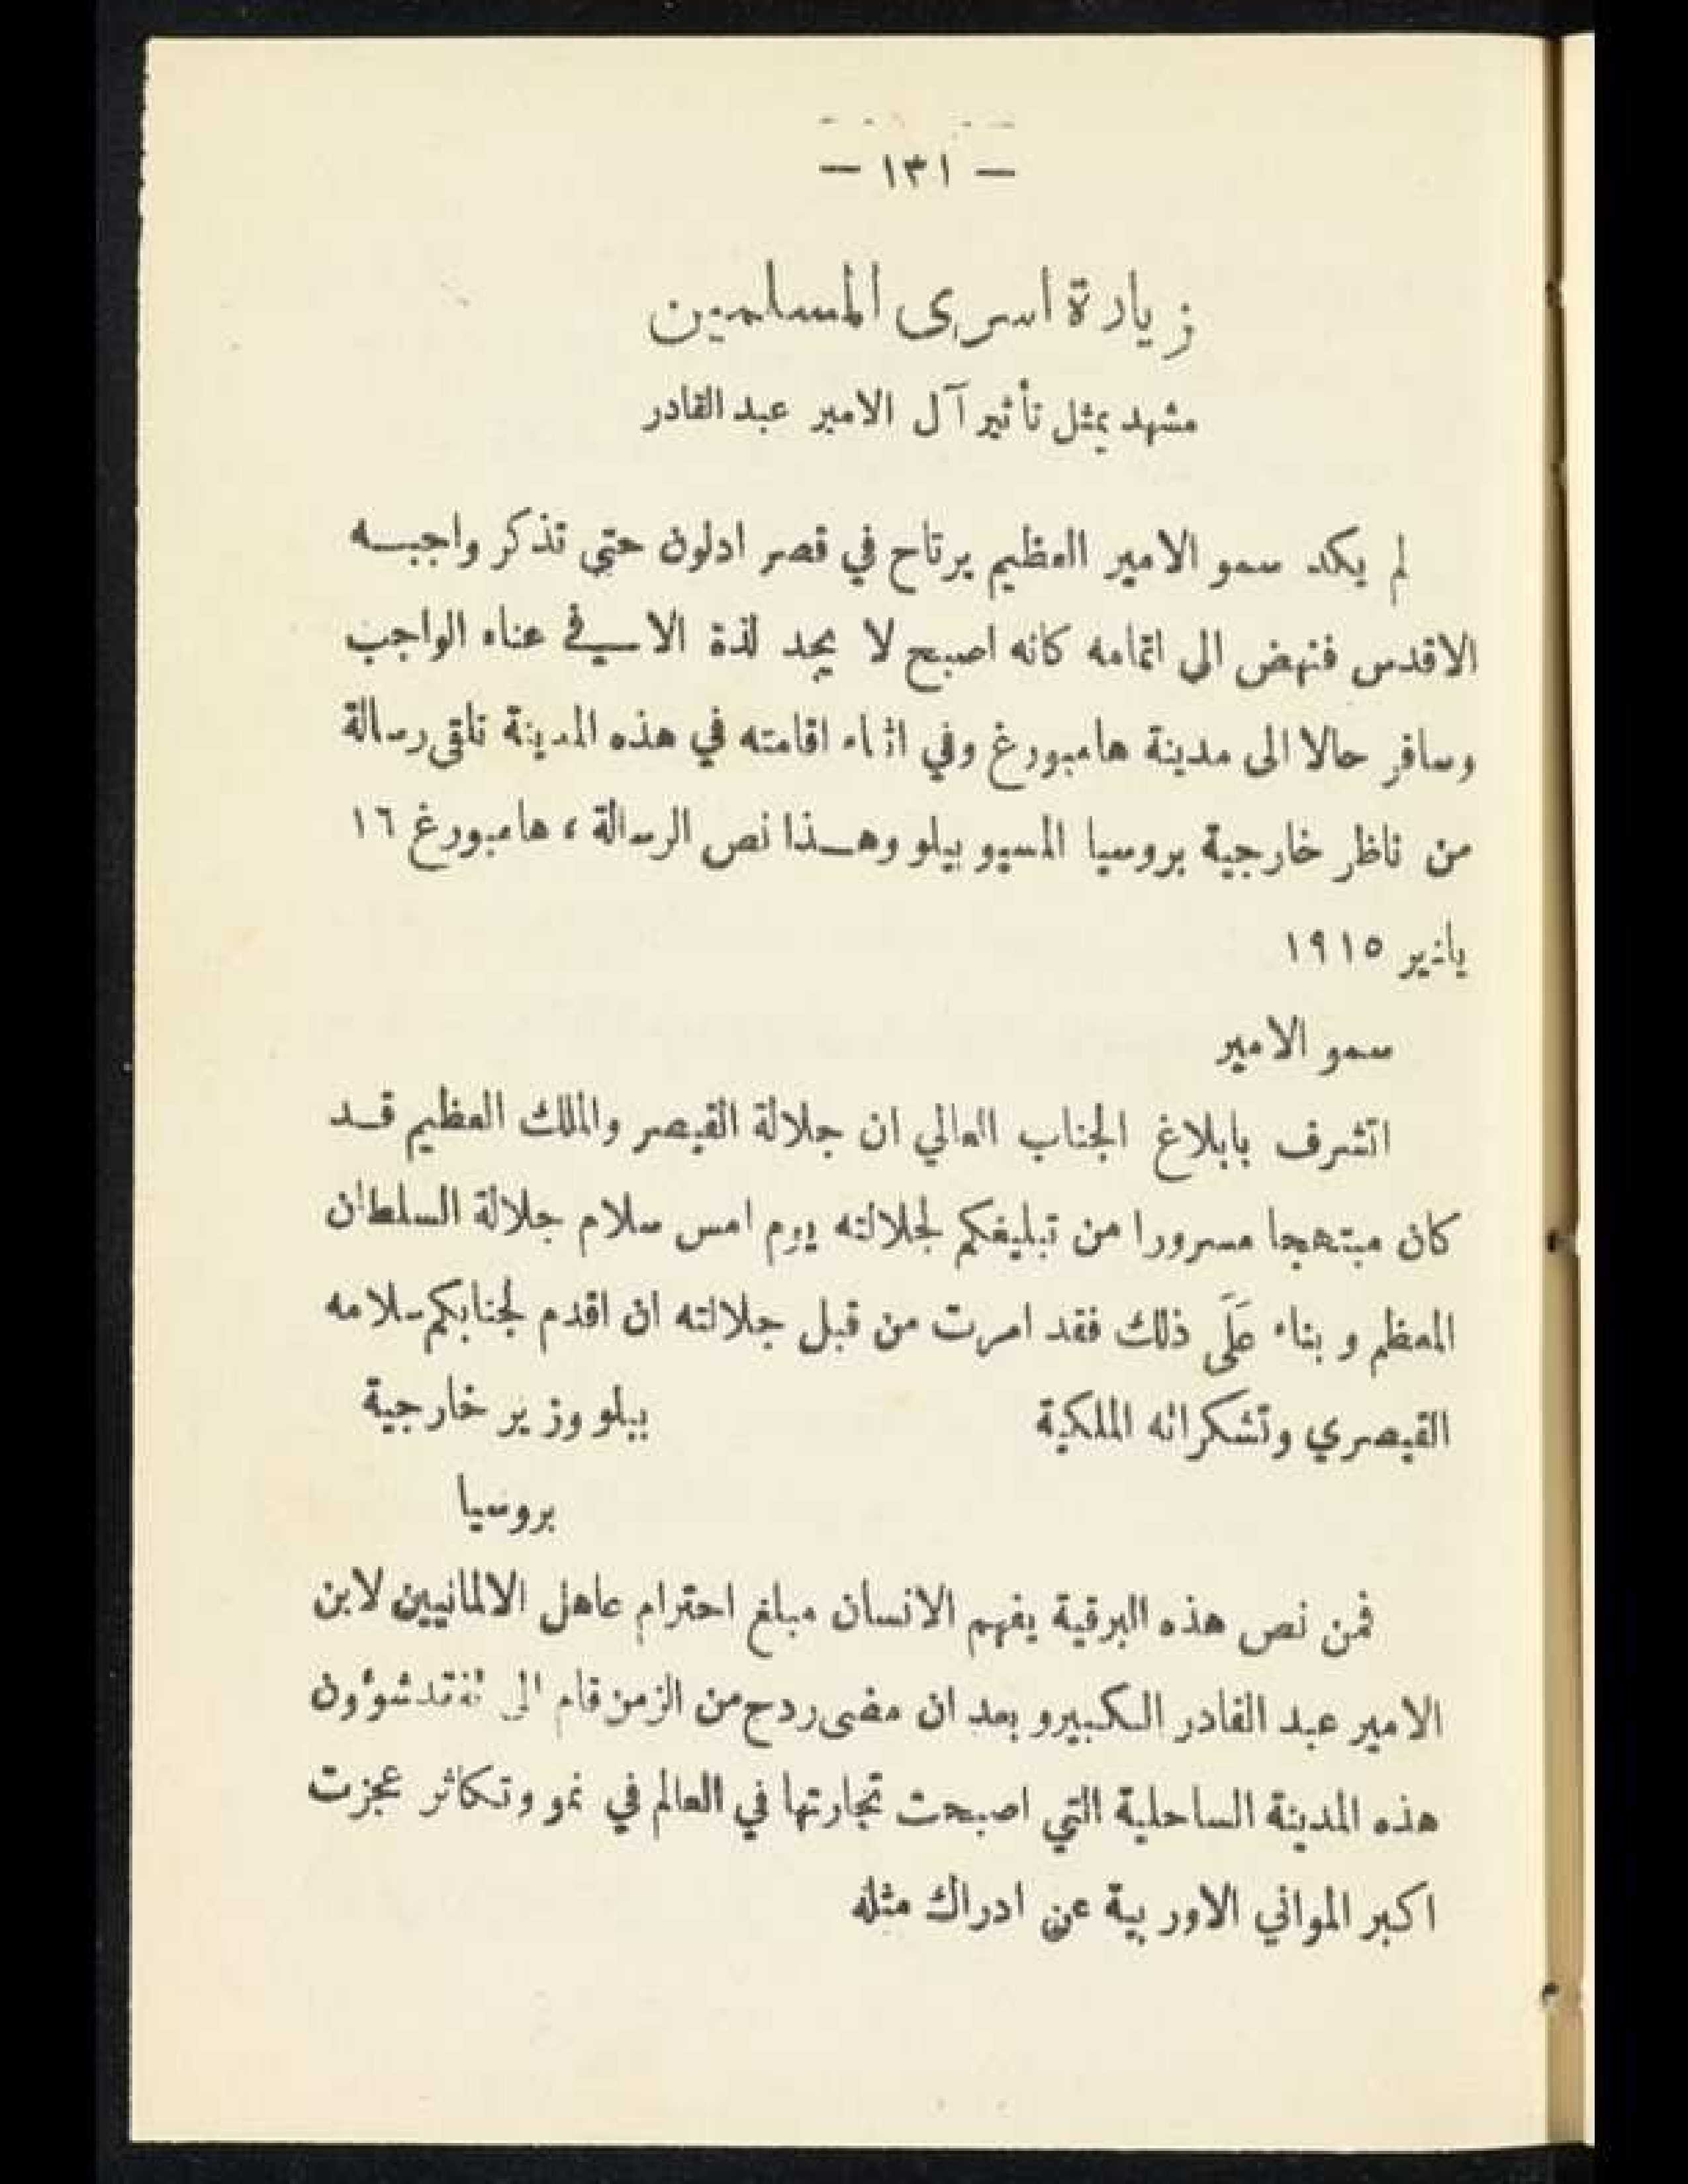 — ١٣١ —
زيارة اسرى المسلمين
مشهد يمثل تأثير آل الامير عبد القادر
لم يكد سمو الامير العظيم يرتاح في قصر ادلون حتى تذكر واجبـــه
الاقدس فنهض الى اتمامه كانه اصبح لا يجد لذة الا ســفي عناء الواجب
وسافر حالا الى مدينة هامبورغ وفي اثناء اقامته في هذه المدينة تلقى رسالة
من ناظر خارجية بروسيا المسيو بيلو وهــذا نص الرسالة ، هامبورغ ١٦
يانير ١٩١٥
سمو الامير
اتشرف بابلاغ الجناب العالي ان جلالة القيصر والملك العظيم قــد
كان مبتهجا مسرورا من تبليغكم لجلالته يوم امس سلام جلالة السلطان
المعظم و بناء عَلَى ذلك فقد امرت من قبل جلالته ان اقدم لجنابكم سلامه
القيصري وتشكراته الملكية بيلو وزير خارجية
بروسيا
فمن نص هذه البرقية يفهم الانسان مبلغ احترام عاهل الالمانيين لابن
الامير عبد القادر الكبير و بعد ان مضى ردح من الزمن قام الى تفقد شؤون
هذه المدينة الساحلية التي اصبحت تجارتها في العالم في نمو وتكاثر عجزت
اكبر المواني الاوربية عن ادراك مثله